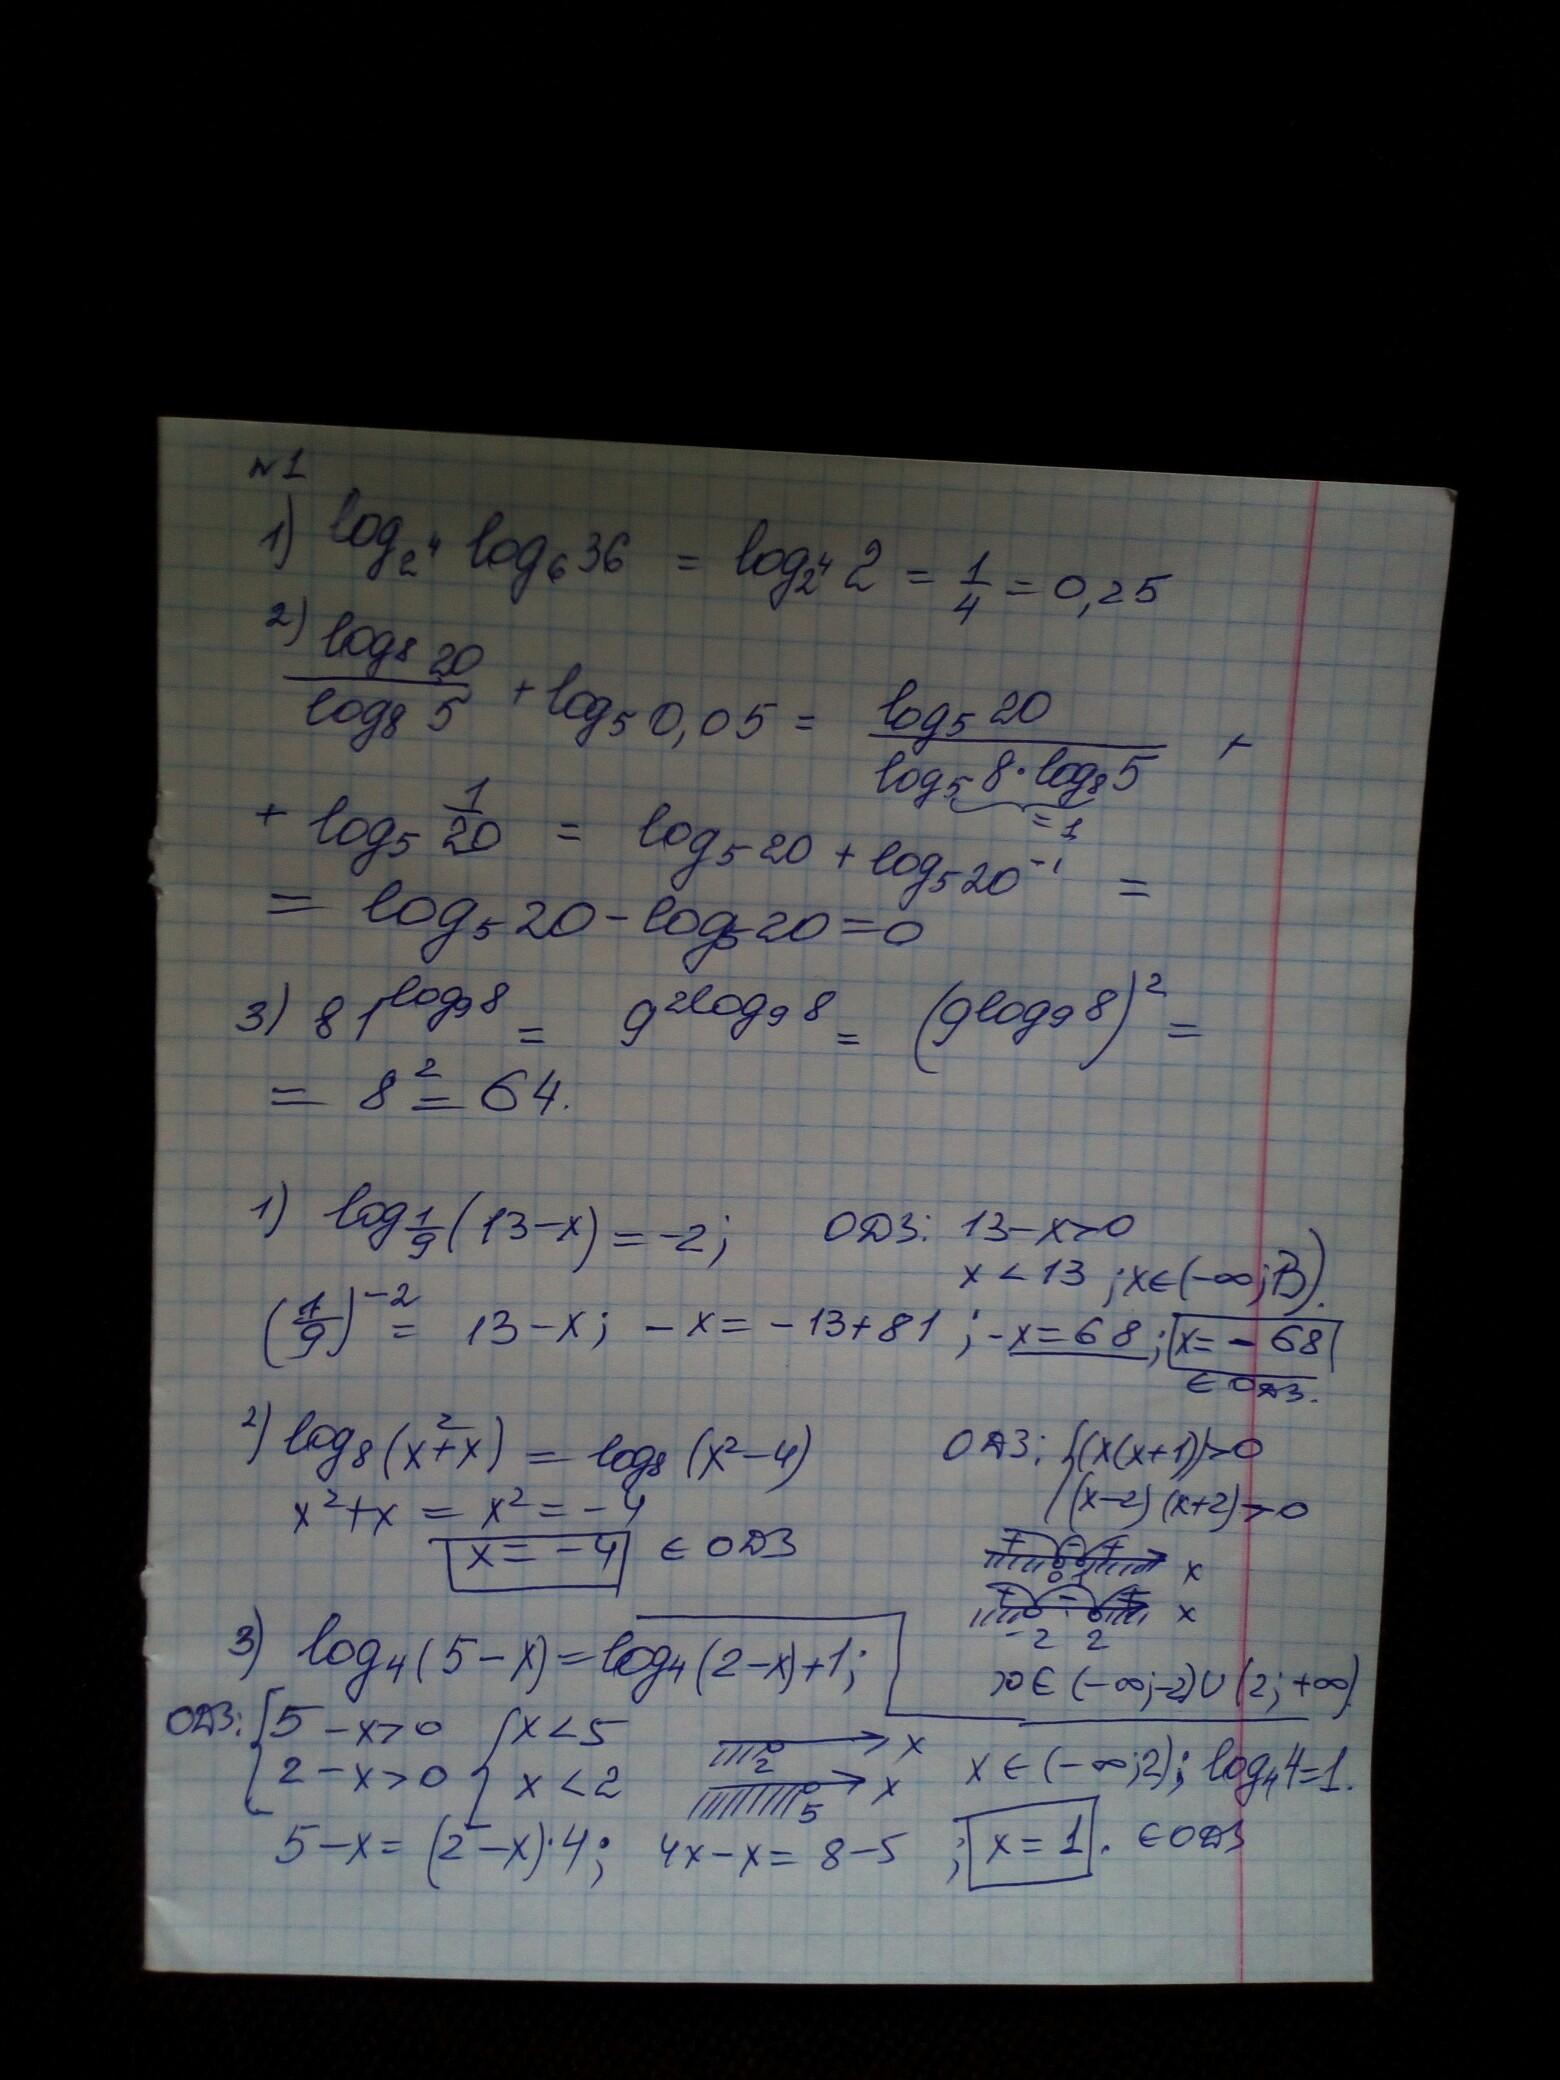 №1
1) log₂⁴ log₆36 = log₂⁴ 2 = 1/4 = 0,25
2) log₈ 20 / log₈ 5 + log₅ 0,05 = log₅ 20 / log₅ 8 · log₈ 5 +
= 1
+ log₅ 1/20 = log₅ 20 + log₅ 20⁻¹ =
= log₅ 20 - log₅ 20 = 0
3) 81^log₉8 = 9^2log₉8 = (9log₉8)² =
= 8² = 64.
1) log1/9 (13-x) = -2; ОДЗ: 13-x>0
x < 13 ; x∈(-∞;13).
(1/9)⁻² = 13-x; -x = -13+81 ; -x = 68 ; x = - 68
∈ ОДЗ.
2) log₈(x²+x) = log₈ (x²-4) ОДЗ: {(x(x+1))>0
(x-2)(x+2)>0
x²+x = x² = -4
x = -4 ∈ ОДЗ
+ - + x
+ - + x
-2 2
x∈(-∞;-2)∪(2;+∞)
3) log₄(5-x) = log₄(2-x)+1;
ОДЗ: {5-x>0 {x<5 2 x
2-x>0 x<2 5 x x∈(-∞;2); log₄4=1.
5-x = (2-x)·4; 4x-x = 8-5 ; x = 1. ∈ОДЗ